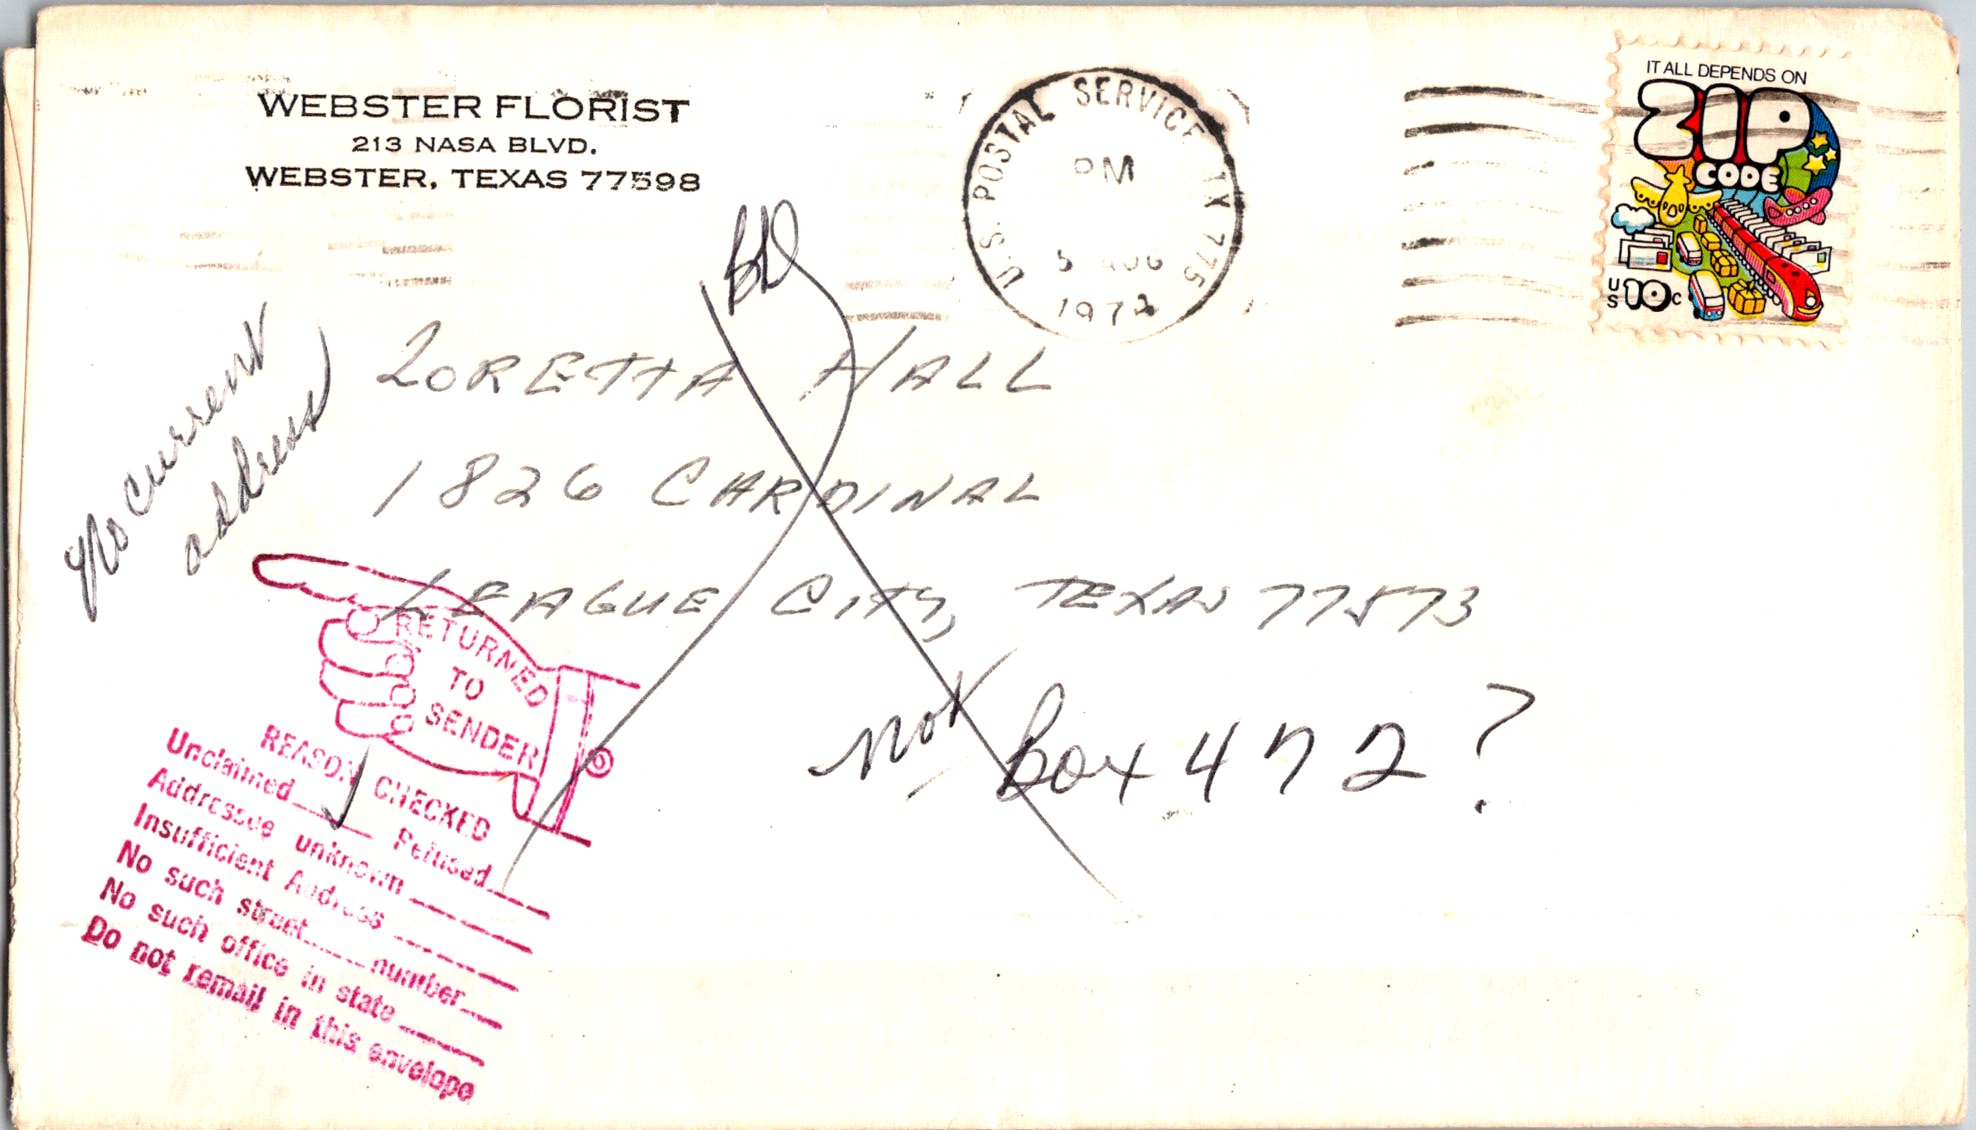 WEBSTER FLORIST
213 NASA BLVD.
WEBSTER, TEXAS 77598
U.S. POSTAL SERVICE TX 775
PM
5 AUG
197
IT ALL DEPENDS ON
ZIP
CODE
US 10c
No current
address
LORETTA HALL
1826 CARDINAL
LEAGUE CITY, TEXAS 77573
not Box 472?
RETURNED
TO
SENDER
REASON CHECKED
Unclaimed Refused
Addressee unknown
Insufficient Address
No such street number
No such office in state
Do not remail in this envelope